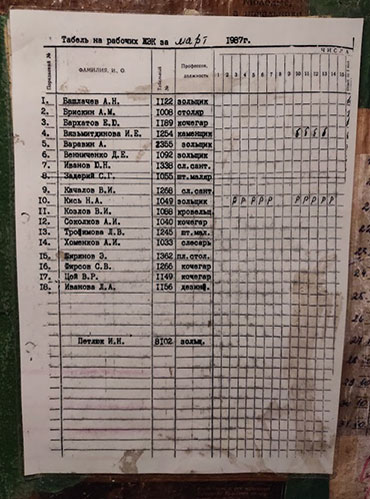 Табель на рабочих ЖЭК за март 1987г.
ЧИСЛА
Порядковый № ФАМИЛИЯ, И., О. Табельный № Профессия, должность 1 2 3 4 5 6 7 8 9 10 11 12 13 14 15
1. Башлачев А.Н. 1122 зольщик
2. Брискин А.М. 1008 столяр
3. Бархатов Е.D. 1189 кочегар
4. Вязьмитдинова И.Е. 1254 каменщик б б б б
5. Варавин А. 2355 зольщик
6. Венниченко Д.Е. 1092 зольщик
7. Иванов Ю.Н. 1338 сл.сант.
8. Задерий С.Г. 1055 шт.маляр
9. Качалов В.И. 1268 сл.сант.
10. Кись Н.А. 1049 зольщик р р р р р р р
11. Козлов В.И. 1088 кровельщ.
12. Соколков А.И. 1040 кочегар
13. Трофимова Л.В. 1245 шт.мал.
14. Хоменков А.И. 1033 слесарь
15. Ширинов Э. 1362 пл.стол.
16. Фирсов С.В. 1266 кочегар
17. Цой В.Р. 1149 кочегар
18. Иванова Л.А. 1156 дезинф.
Петлюк И.Н. 8102 зольщ.